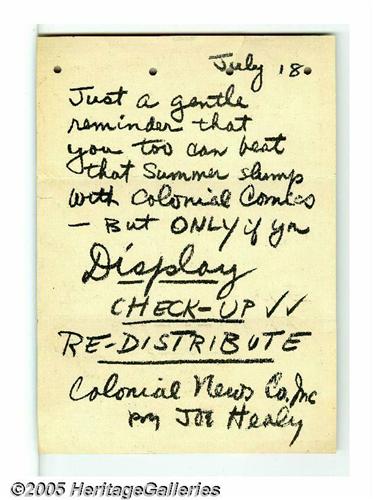 July 18
Just a gentle
reminder that
you too can beat
that Summer slump
with Colonial Comics
— But ONLY if you
Display
CHECK-UP ✓✓
RE-DISTRIBUTE
Colonial News Co. Inc
per Joe Healy
©2005 HeritageGalleries